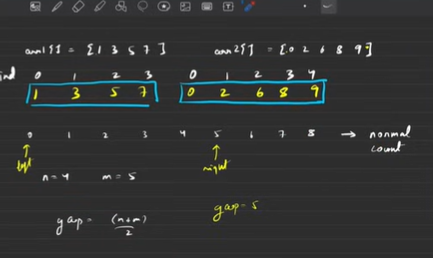 arr1[] = {1 3 5 7} arr2[] = {0 2 6 8 9}
ind 0 1 2 3 0 1 2 3 4
1 3 5 7 0 2 6 8 9
0 1 2 3 4 5 6 7 8 → normal count
left right
n=4 m=5
gap = (n+m)/2 gap = 5